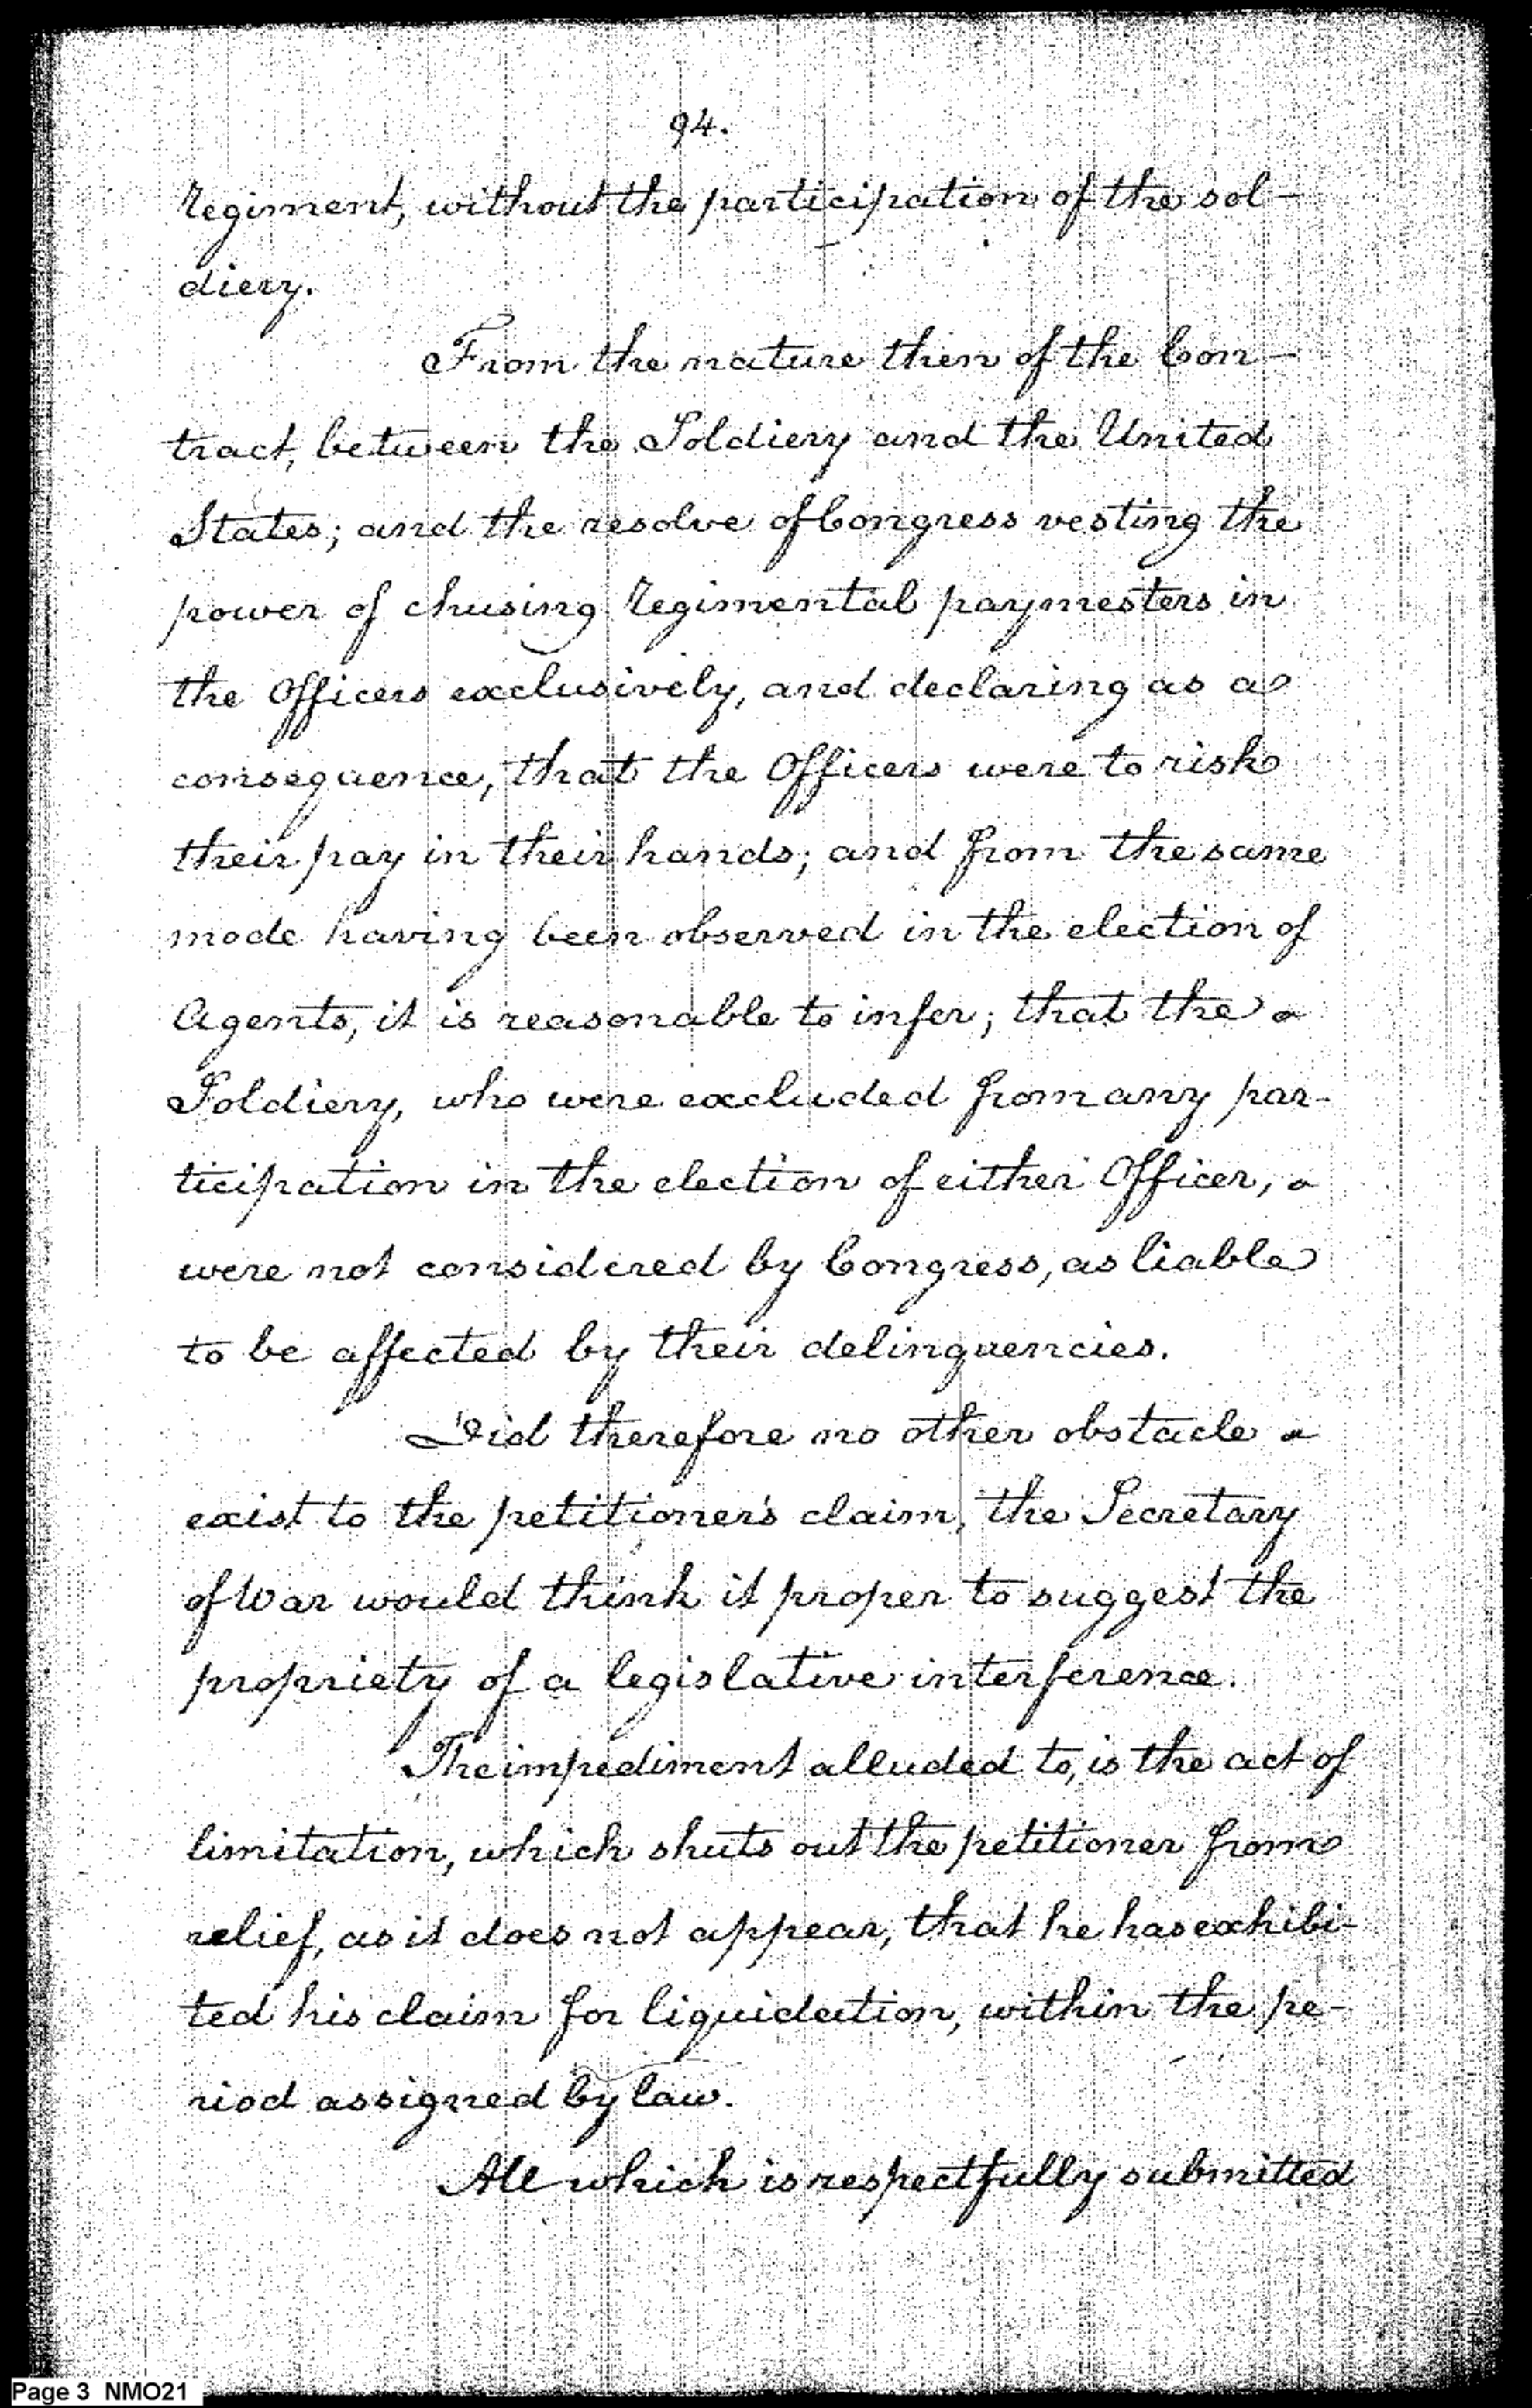 94.
Regiment, without the participation of the sol-
diery.
From the nature then of the Con-
tract, between the Soldiery and the United
States; and the resolve of Congress vesting the
power of chusing Regimental paymesters in
the Officers exclusively, and declaring as a
consequence, that the Officers were to risk
their pay in their hands; and from the same
mode having been observed in the election of
Agents, it is reasonable to infer; that the
Soldiery, who were excluded from any par-
ticipation in the election of either Officer,
were not considered by Congress, as liable
to be affected by their delinquencies.
Did therefore no other obstacle
exist to the petitioner's claim, the Secretary
of War would think it proper to suggest the
propriety of a legislative interference.
The impediment alluded to, is the act of
limitation, which shuts out the petitioner from
relief, as it does not appear, that he has exhibi-
ted his claim for liquidation, within the pe-
riod assigned by law.
All which is respectfully submitted
Page 3 NMO21